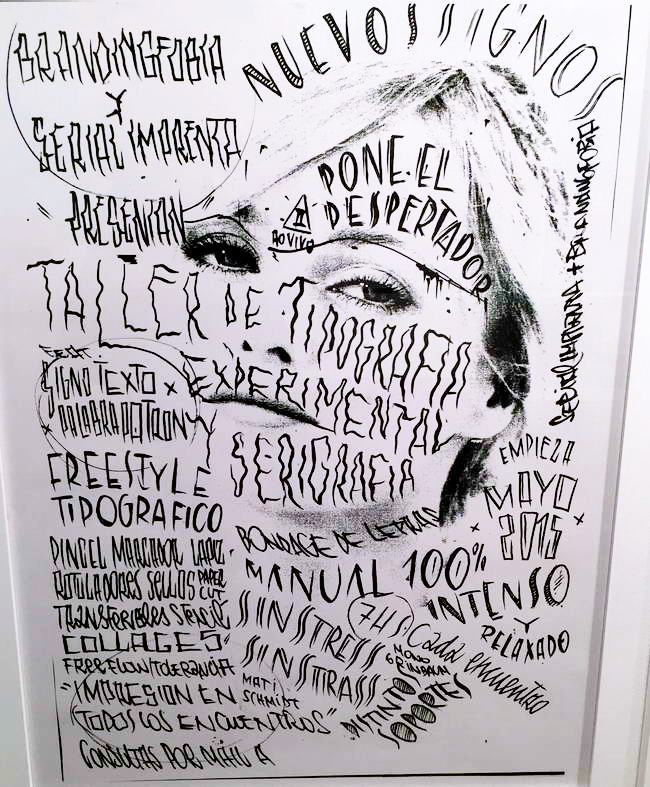 NUEVOS SIGNOS
BRANDINGFOBIA
Y
SERIAL IMPRENTA
PRESENTAN
PONE EL
DESPERTADOR
AO VIVO
TALLER DE TIPOGRAFIA
EXPERIMENTAL
Y SERIGRAFIA
SERIAL IMPRENTA + BRANDINGFOBIA
SIGNO TEXTO x
PALABRA PATRON
FREESTYLE
TIPOGRAFICO
PINCEL MARCADOR LAPIZ
ROTULADORES SELLOS PAPER CUT
TRANSFERIBLES STENCIL
COLLAGES
"IMPRESION EN
TODOS LOS ENCUENTROS"
CONSULTAS POR MAIL A
BONDAGE DE LETRAS
MANUAL 100%
SIN STRESS
SIN STRASS
MATI
SCHMIDT
EMPIEZA
MAYO
2015
INTENSO
Y
RELAXADO
Cada encuentro
MONO
GRINBAUM
DISTINTOS
SOPORTES